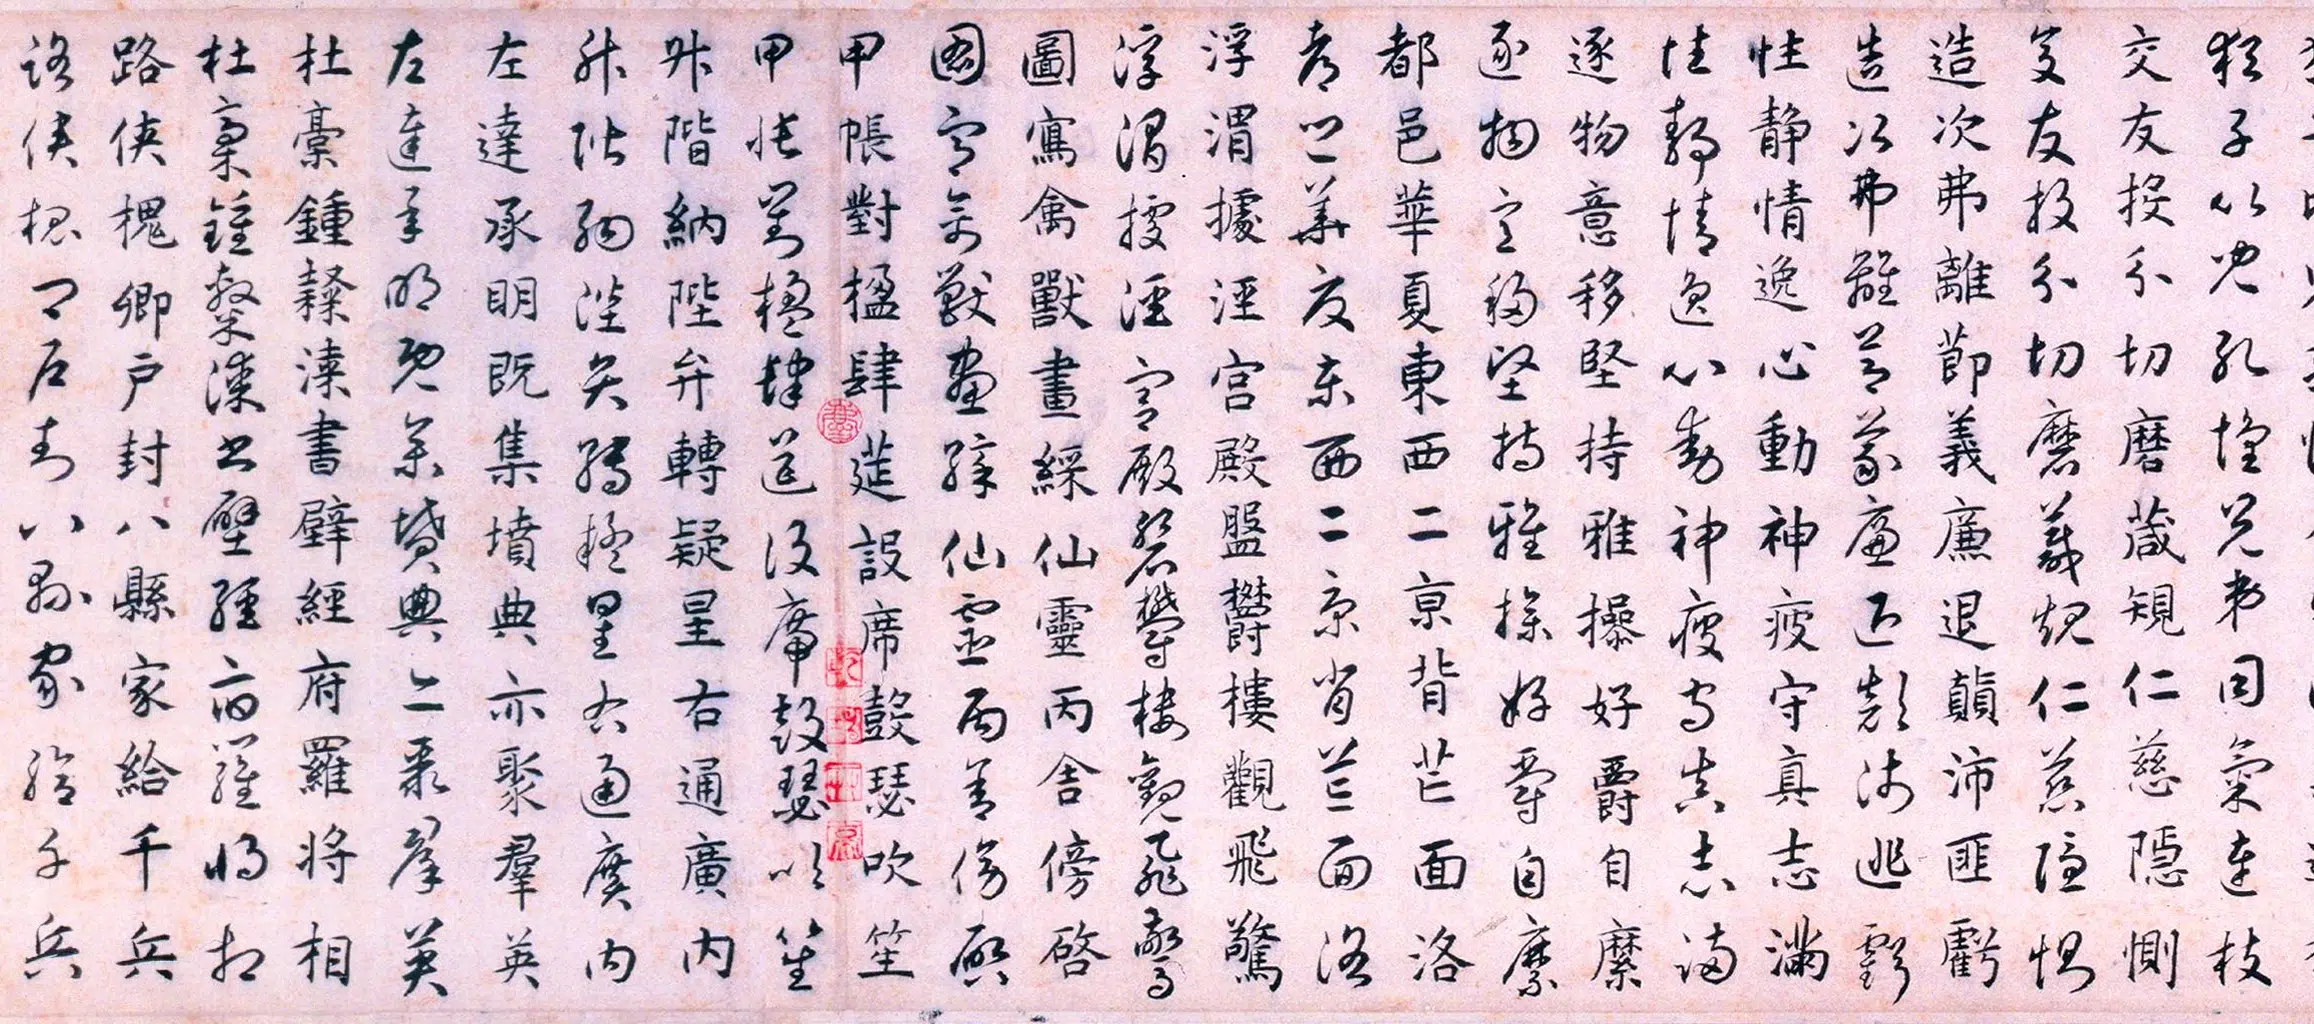 猶子比兒孔懷兄弟同氣連枝
交友投分切磨箴規仁慈隱惻
交友投分切磨箴規仁慈隱惻
造次弗離節義廉退顛沛匪虧
造次弗離節義廉退顛沛匪虧
性静情逸心動神疲守真志滿
性静情逸心動神疲守真志滿
逐物意移堅持雅操好爵自縻
逐物意移堅持雅操好爵自縻
都邑華夏東西二京背芒面洛
都邑華夏東西二京背芒面洛
浮渭據涇宮殿盤鬱樓觀飛驚
浮渭據涇宮殿盤鬱樓觀飛驚
圖寫禽獸畫綵仙靈丙舍傍啓
圖寫禽獸畫綵仙靈丙舍傍啓
甲帳對楹肆筵設席鼓瑟吹笙
甲帳對楹肆筵設席鼓瑟吹笙
升階納陛弁轉疑星右通廣内
升階納陛弁轉疑星右通廣内
左達承明既集墳典亦聚羣英
左達承明既集墳典亦聚羣英
杜稾鍾隸漆書壁經府羅將相
杜稾鍾隸漆書壁經府羅將相
路俠槐卿户封八縣家給千兵
路俠槐卿户封八縣家給千兵